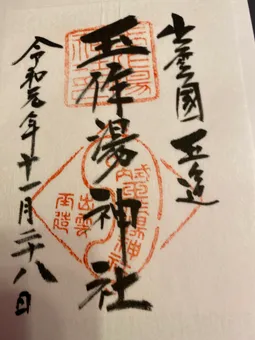 出雲國 玉造
玉作湯神社
令和元年十一月二十八日
式内
出雲
玉造